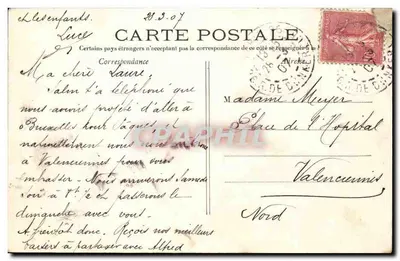 et les enfants. 23.3.07
Luce
CARTE POSTALE
Certains pays étrangers n'acceptant pas la correspondance de ce côté se renseigner à la
Correspondance
Adresse
Ma chère Laure,
t'a téléphoné que
nous avions projeté d'aller à
Bruxelles pour Pâques et
naturellement nous
Valenciennes pour vous
embrasser - Nous arriverons Samedi
soir à et passerons le
dimanche avec vous.
A bientôt donc. Reçois nos meilleurs
baisers à partager avec Alfred
Madame Meyer
Place de l'Hopital
Valenciennes
Nord